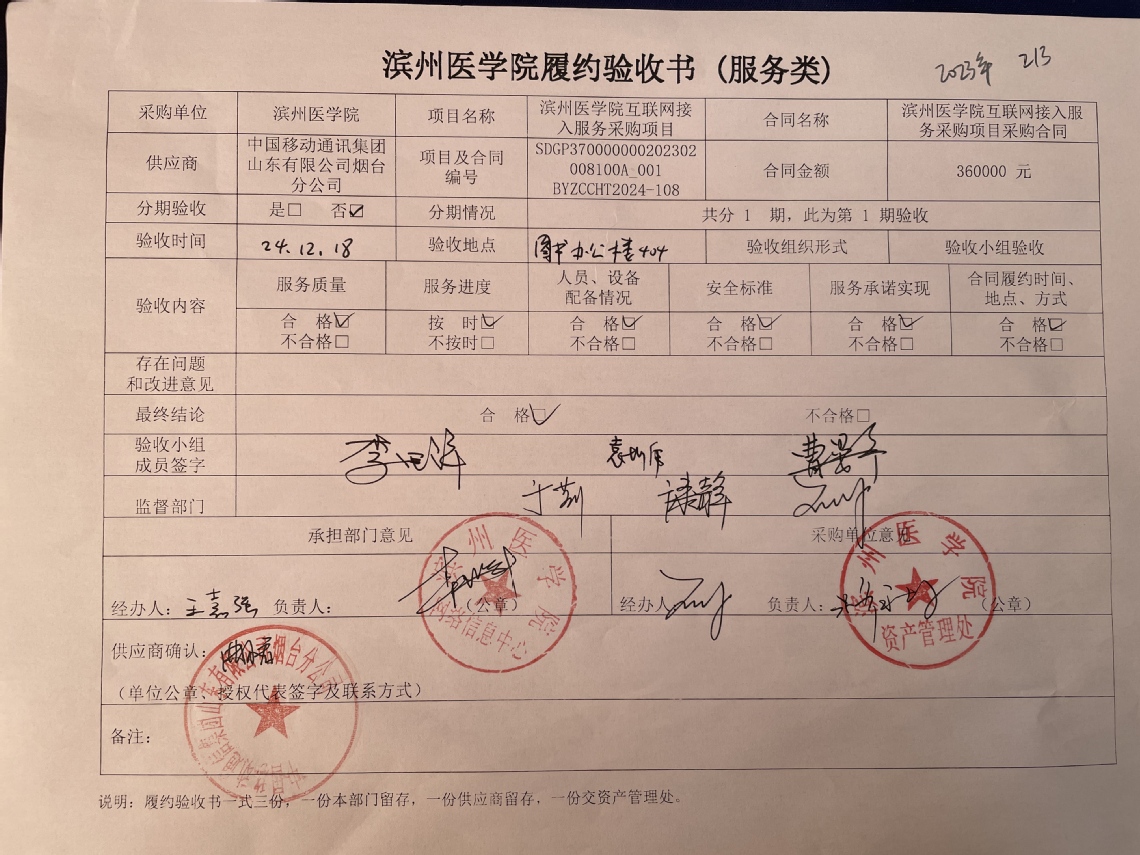 滨州医学院履约验收书（服务类）
2023年 213
采购单位 滨州医学院 项目名称 滨州医学院互联网接
入服务采购项目 合同名称 滨州医学院互联网接入服
务采购项目采购合同
供应商 中国移动通讯集团
山东有限公司烟台
分公司 项目及合同
编号 SDGP370000000202302
008100A_001
BYZCCHT2024-108 合同金额 360000 元
分期验收 是□ 否☑ 分期情况 共分 1 期，此为第 1 期验收
验收时间 24.12.18 验收地点 图书办公楼404 验收组织形式 验收小组验收
验收内容
服务质量 服务进度 人员、设备
配备情况 安全标准 服务承诺实现 合同履约时间、
地点、方式
合 格☑ 按 时☑ 合 格☑ 合 格☑ 合 格☑ 合 格☑
不合格□ 不按时□ 不合格□ 不合格□ 不合格□ 不合格□
存在问题
和改进意见
最终结论 合 格☑ 不合格□
验收小组
成员签字
监督部门
承担部门意见 采购单位意见
经办人：王嘉强 负责人： （公章） 经办人 负责人： （公章）
滨州医学院
网络信息中心
滨州医学院
资产管理处
供应商确认：
（单位公章、授权代表签字及联系方式）
中国移动通信集团山东有限公司烟台分公司
备注：
说明：履约验收书一式三份，一份本部门留存，一份供应商留存，一份交资产管理处。